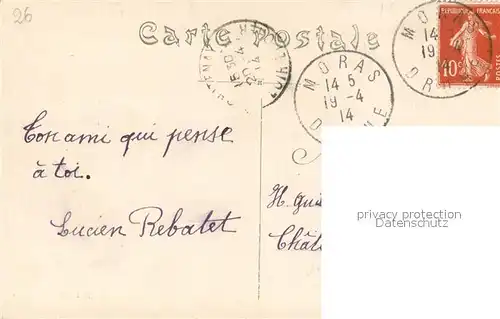 26
Carte Postale
MORAS
14 5
19-4
14
DROME
MORAS
14
19 4
14
REPUBLIQUE FRANÇAISE
10c
POSTES
15 30
20-4
14
Ton ami qui pense
à toi.
Lucien Rebatet
H.
Chât
privacy protection
Datenschutz